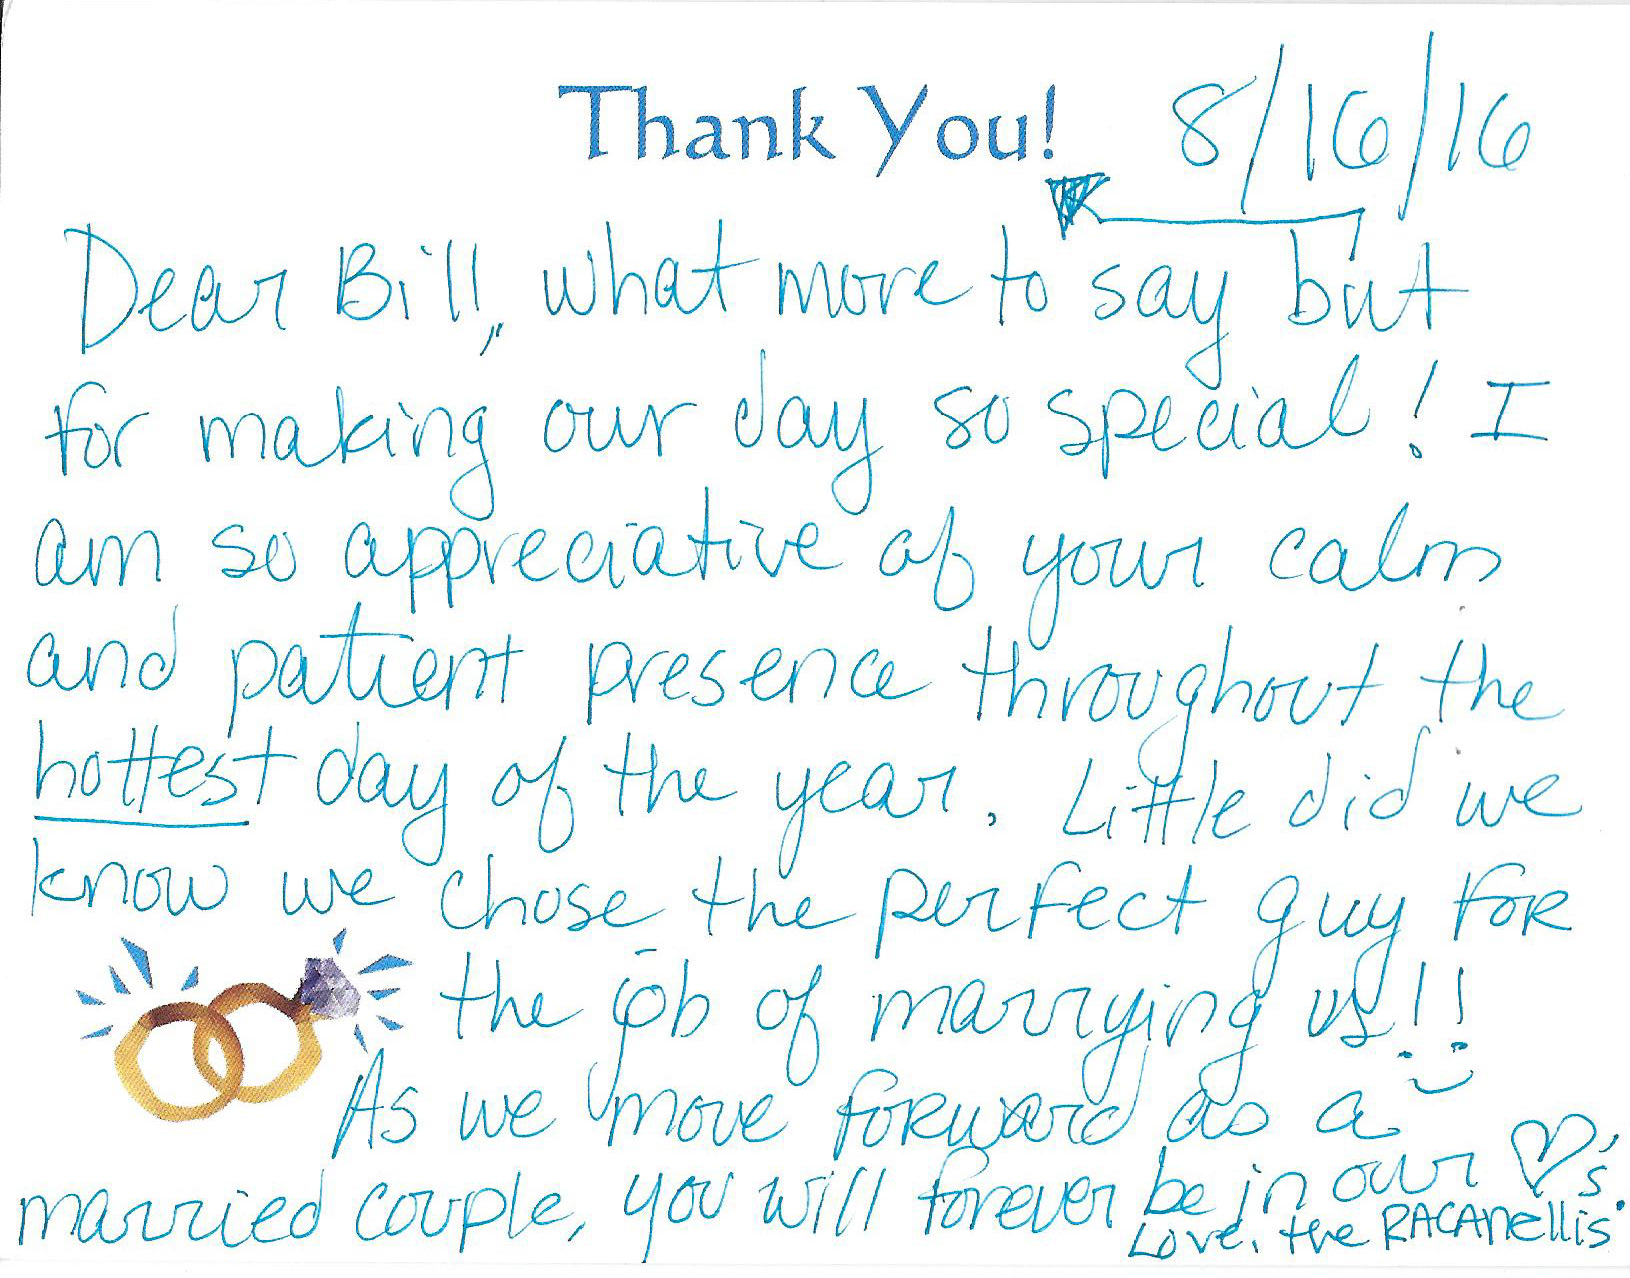 Thank You! 8/16/16
Dear Bill, what more to say but
for making our day so special! I
am so appreciative of your calm
and patient presence throughout the
hottest day of the year. Little did we
know we chose the perfect guy for
the job of marrying us!!
As we move forward as a
married couple, you will forever be in our ♡'s.
Love, the RACANELLIS